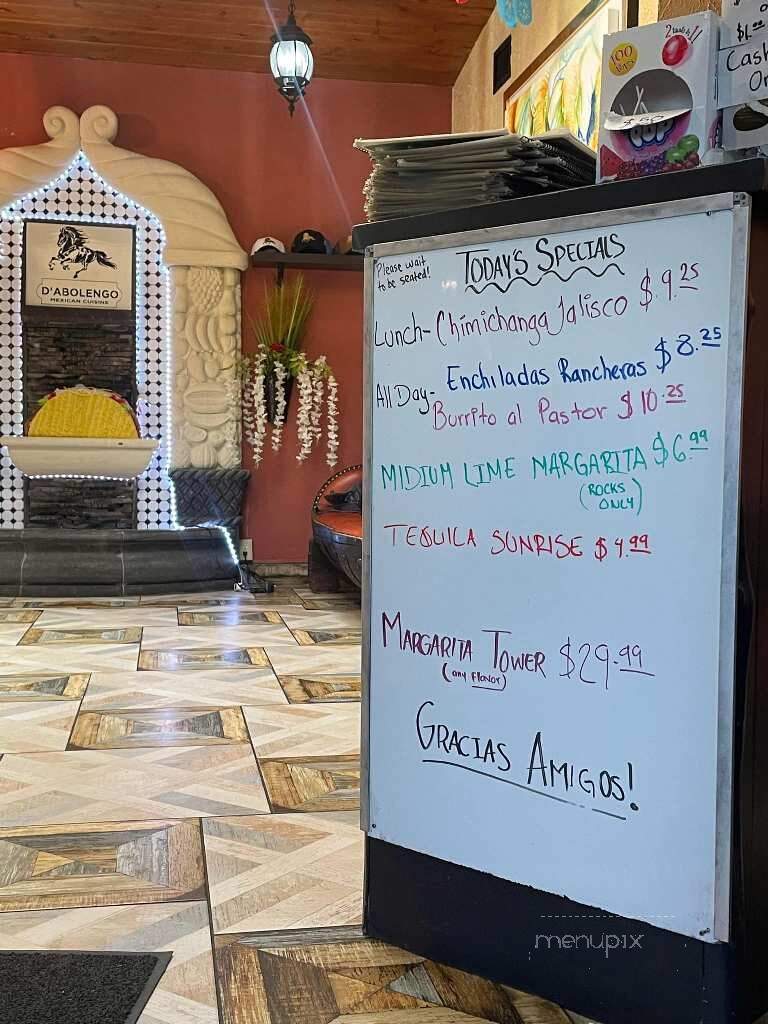 Please wait
to be seated!
TODAY'S SPECIALS
Lunch- Chimichanga Jalisco $9.25
All Day- Enchiladas Rancheras $8.25
Burrito al Pastor $10.25
MIDIUM LIME MARGARITA $6.99
(ROCKS
ONLY)
TEQUILA SUNRISE $4.99
MARGARITA TOWER $29.99
(any Flavor)
GRACIAS AMIGOS!
D'ABOLENGO
MEXICAN CUISINE
100
POP
Cash
menupix